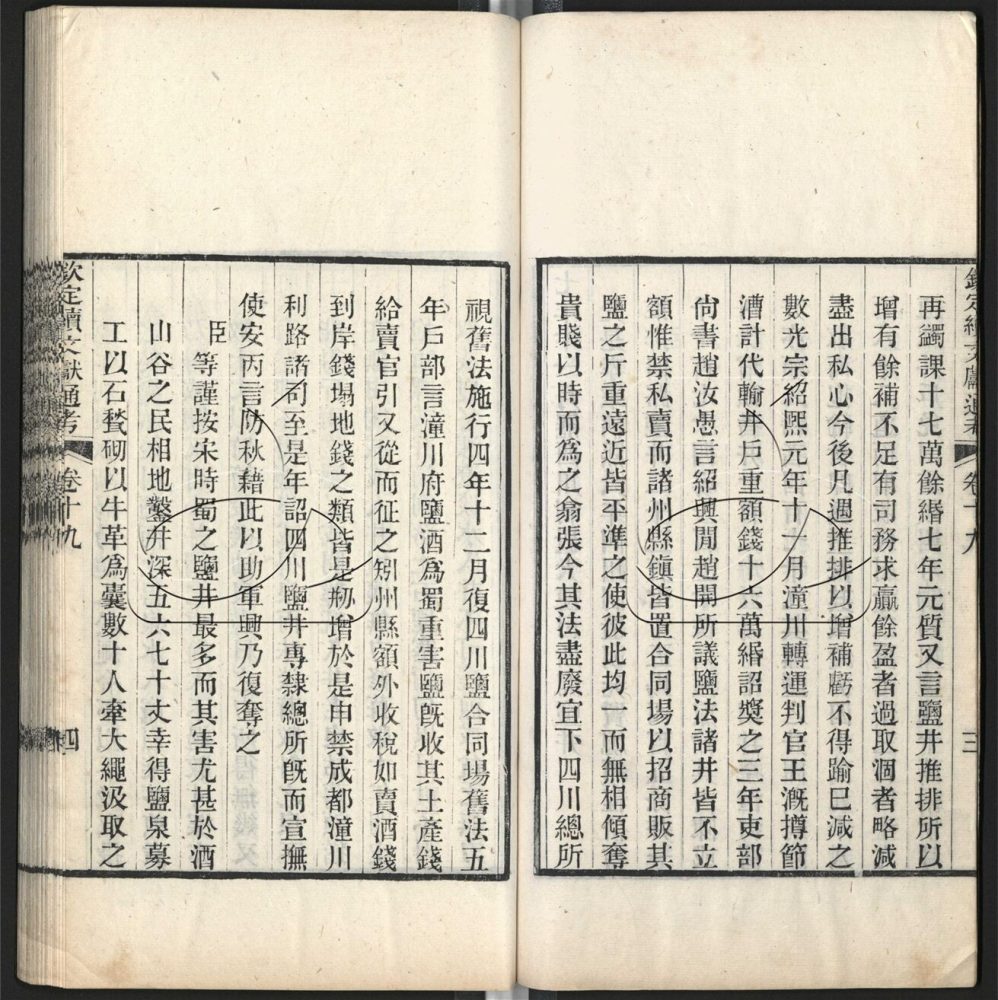 欽定續文獻通考 卷十九 三
再蠲課十七萬餘緡七年元質又言鹽井推排所以
增有餘補不足有司務求贏餘盈者過取涸者略減
盡出私心今後凡遇推排以增補虧不得踰已減之
數光宗紹熙元年十一月潼川轉運判官王溉撙節
漕計代輸井戶重額錢十六萬緡詔獎之三年吏部
尚書趙汝愚言紹興閒趙開所議鹽法諸井皆不立
額惟禁私賣而諸州縣鎮皆置合同場以招商販其
鹽之斤重遠近皆平準之使彼此均一而無相傾奪
貴賤以時而為之翕張今其法盡廢宜下四川總所
視舊法施行四年十二月復四川鹽合同場舊法五
年戶部言潼川府鹽酒為蜀重害鹽旣收其土產錢
給賣官引又從而征之矧州縣額外收稅如賣酒錢
到岸錢塌地錢之類皆是剙增於是申禁成都潼川
利路諸司至是年詔四川鹽井專隸總所旣而宣撫
使安丙言防秋藉此以助軍興乃復奪之
臣等謹按宋時蜀之鹽井最多而其害尤甚於酒
山谷之民相地鑿井深五六七十丈幸得鹽泉募
工以石甃砌以牛革為囊數十人牽大繩汲取之
欽定續文獻通考 卷十九 四